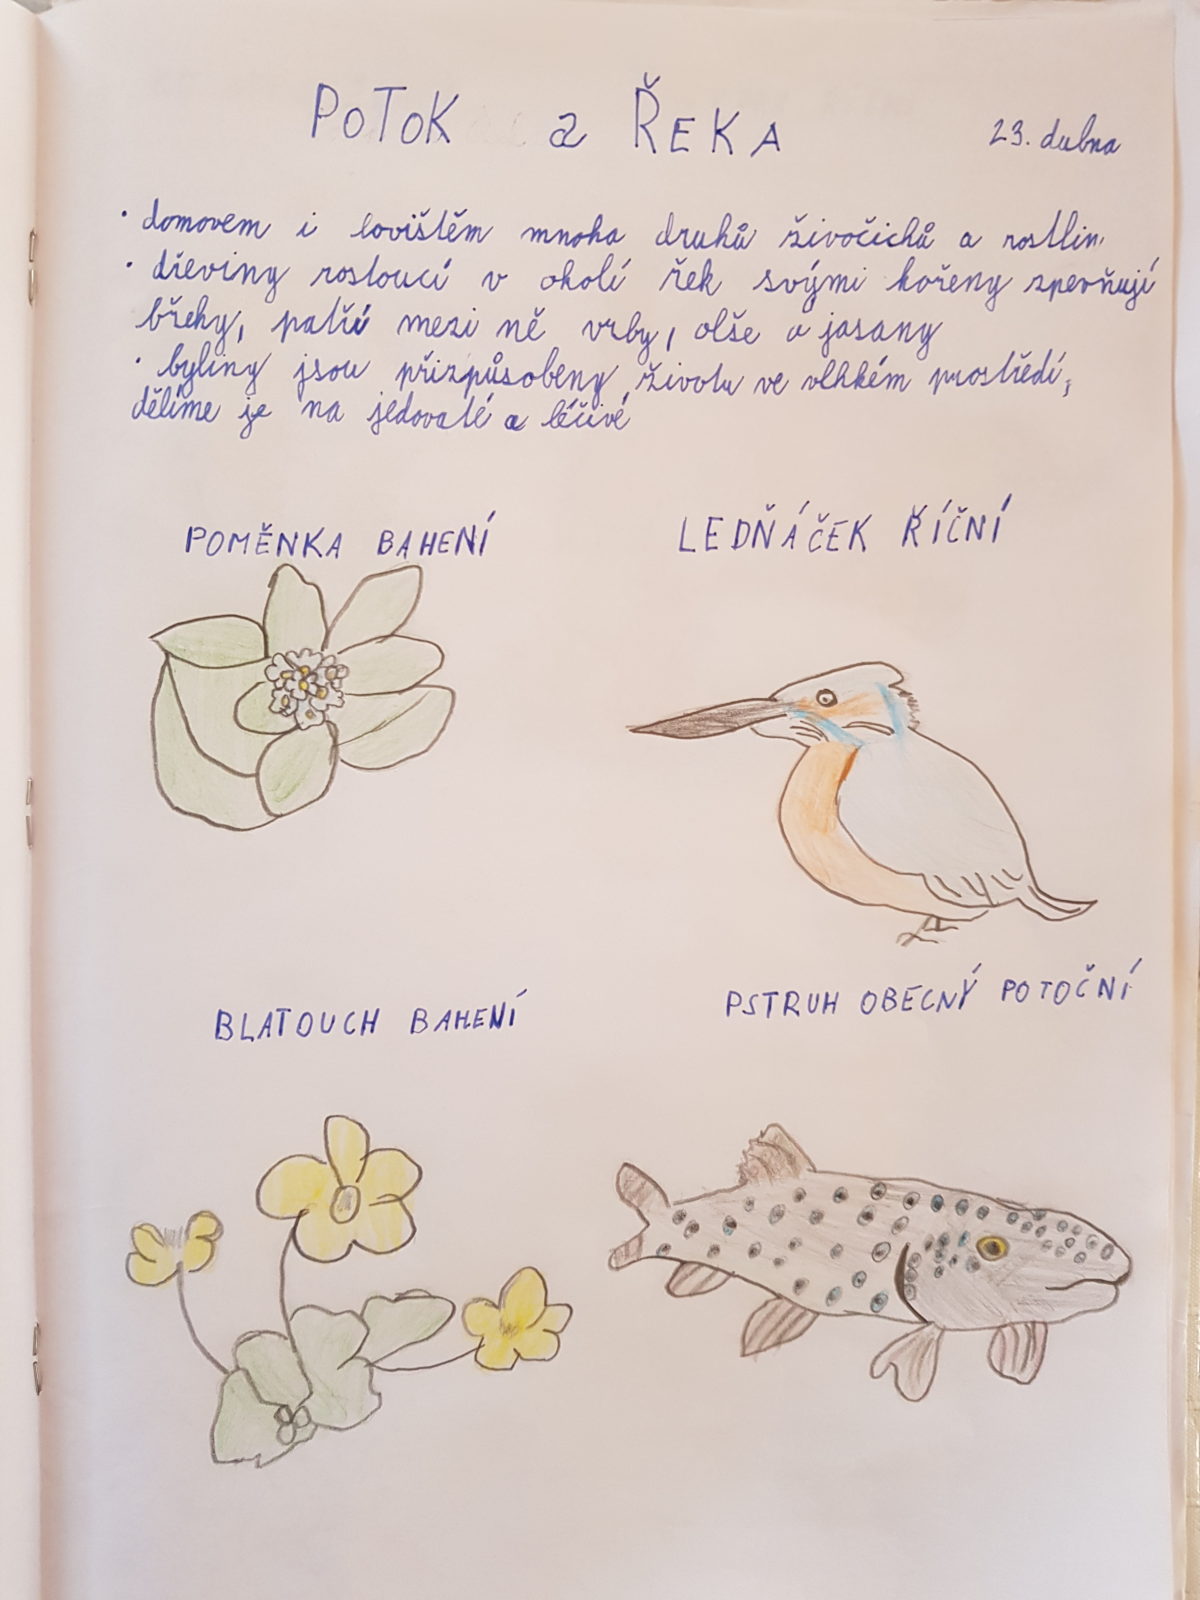 POTOK a ŘEKA
23. dubna
• domovem i lovištěm mnoha druhů živočichů a rostlin.
• dřeviny rostoucí v okolí řek svými kořeny zpevňují
břehy, patří mezi ně vrby, olše a jasany
• byliny jsou přizpůsobeny životu ve vlhkém prostředí,
dělíme je na jedovaté a léčivé
POMĚNKA BAHENÍ
LEDŇÁČEK ŘÍČNÍ
BLATOUCH BAHENÍ
PSTRUH OBECNÝ POTOČNÍ